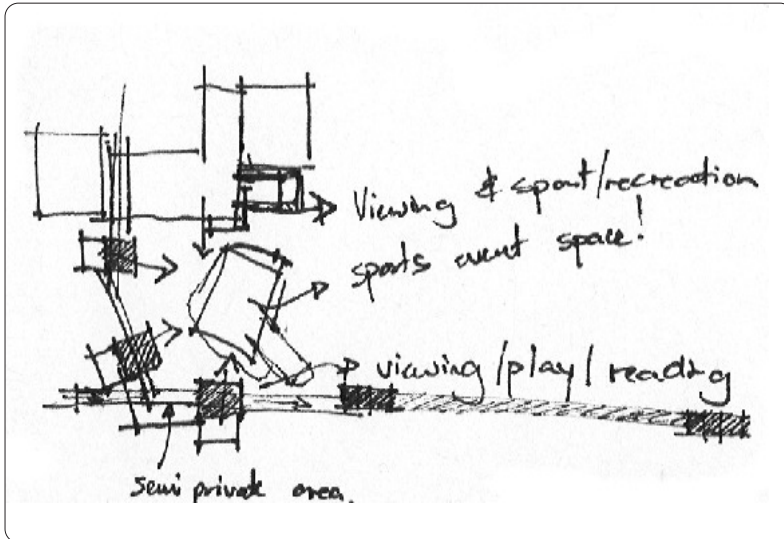 Viewing & sport/recreation
sports event space!
viewing/play/reading
semi private area.